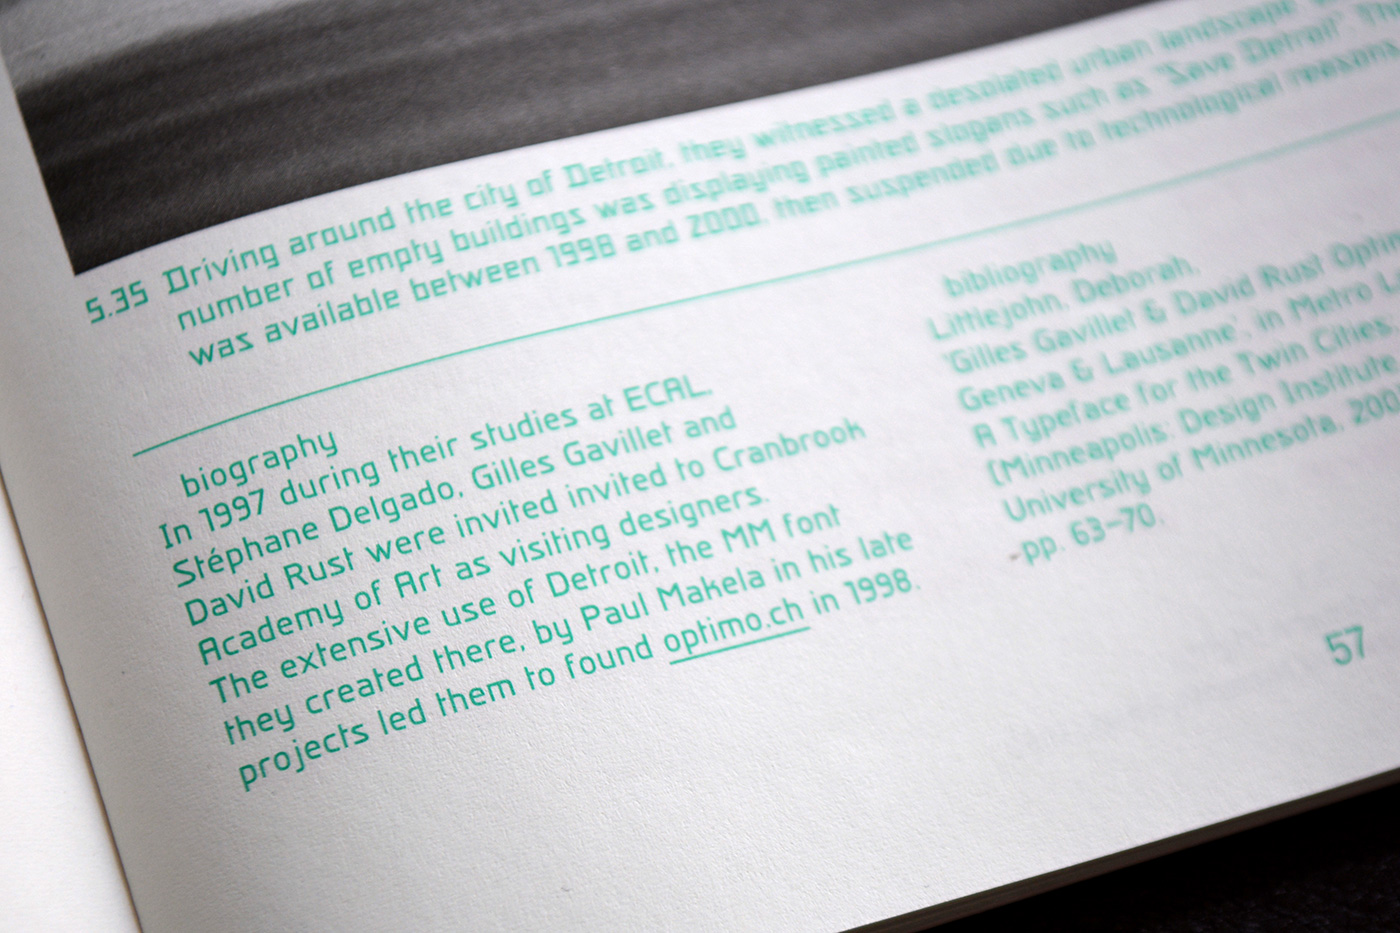 5.35 Driving around the city of Detroit, they witnessed a desolated urban landscape
number of empty buildings was displaying painted slogans such as "Save Detroit". The
was available between 1998 and 2000, then suspended due to technological reasons
biography
In 1997 during their studies at ECAL,
Stéphane Delgado, Gilles Gavillet and
David Rust were invited invited to Cranbrook
Academy of Art as visiting designers.
The extensive use of Detroit, the MM font
they created there, by Paul Makela in his late
projects led them to found optimo.ch in 1998.
bibliography
Littlejohn, Deborah,
'Gilles Gavillet & David Rust Optimo
Geneva & Lausanne', in Metro
A Typeface for the Twin Cities
(Minneapolis: Design Institute
University of Minnesota,
pp. 63–70.
57